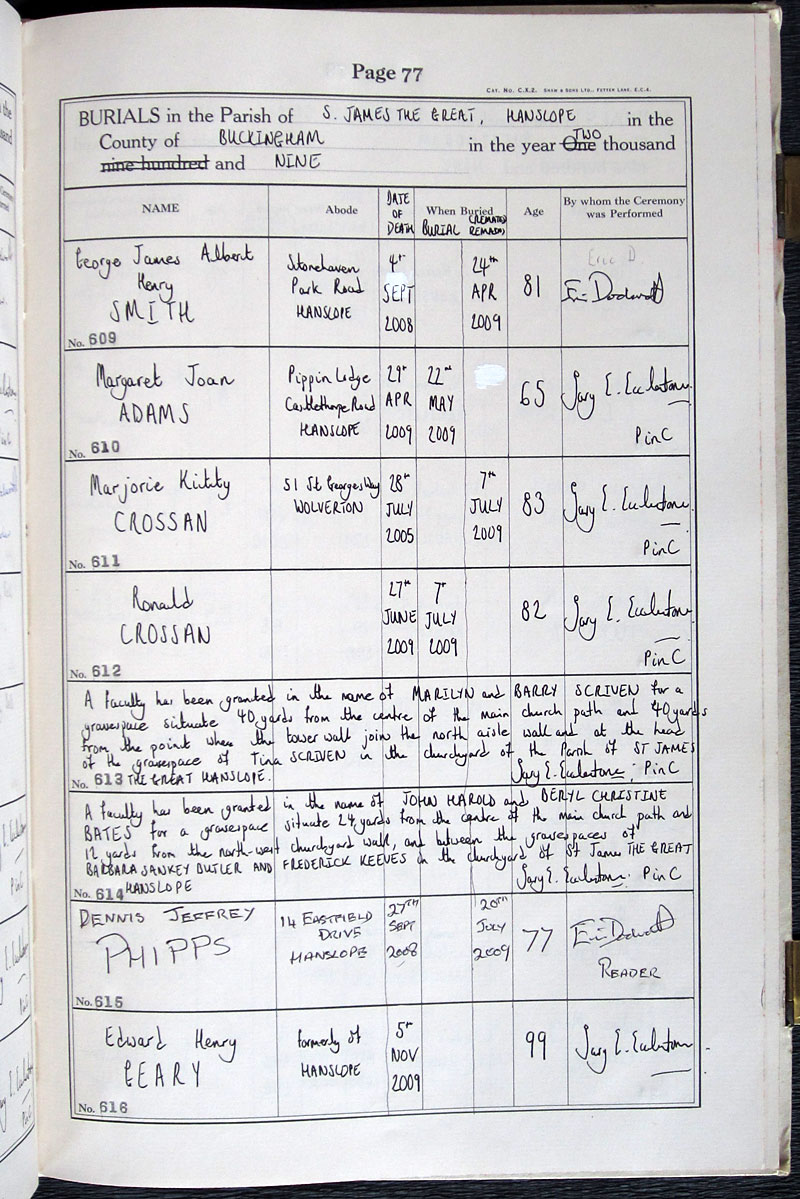 Page 77
CAT. NO. C.X.2. SHAW & SONS LTD., FETTER LANE, E.C.4.
BURIALS in the Parish of S. JAMES THE GREAT, HANSLOPE in the
County of BUCKINGHAM in the year One TWO thousand
nine hundred and NINE
NAME Abode DATE OF DEATH When Buried BURIAL (CREMATED REMAINS) Age By whom the Ceremony was Performed
George James Albert
Henry
SMITH
No. 609
Stonehaven
Park Road
HANSLOPE
4th
SEPT
2008
24th
APR
2009
81
Eric D.
Margaret Joan
ADAMS
No. 610
Pippin Lodge
Castlethorpe Road
HANSLOPE
29th
APR
2009
22nd
MAY
2009
65
Gary E. Ecclestone
PinC
Marjorie Kitty
CROSSAN
No. 611
51 St Georges Way
WOLVERTON
28th
JULY
2005
7th
JULY
2009
83
Gary E. Ecclestone
PinC
Ronald
CROSSAN
No. 612
27th
JUNE
2009
7th
JULY
2009
82
Gary E. Ecclestone
PinC
A faculty has been granted in the name of MARILYN and BARRY SCRIVEN for a
gravespace situate 40 yards from the centre of the main church path and 40 yards
from the point where the tower wall join the north aisle wall and at the head
of the gravespace of Tina SCRIVEN in the churchyard of the Parish of ST JAMES
No. 613 THE GREAT HANSLOPE. Gary E. Ecclestone, PinC
A faculty has been granted in the name of JOHN HAROLD and BERYL CHRISTINE
BATES for a gravespace situate 24 yards from the centre of the main church path and
12 yards from the north-west churchyard wall, and between the gravespaces of
BARBARA SANKEY BUTLER AND FREDERICK KEEVES in the churchyard of St James THE GREAT
No. 614 HANSLOPE Gary E. Ecclestone. PinC
DENNIS JEFFREY
PHIPPS
No. 615
14 EASTFIELD
DRIVE
HANSLOPE
27TH
SEPT
2008
20TH
JULY
2009
77
READER
Edward Henry
GEARY
No. 616
formerly of
HANSLOPE
5th
NOV
2009
99
Gary E. Ecclestone